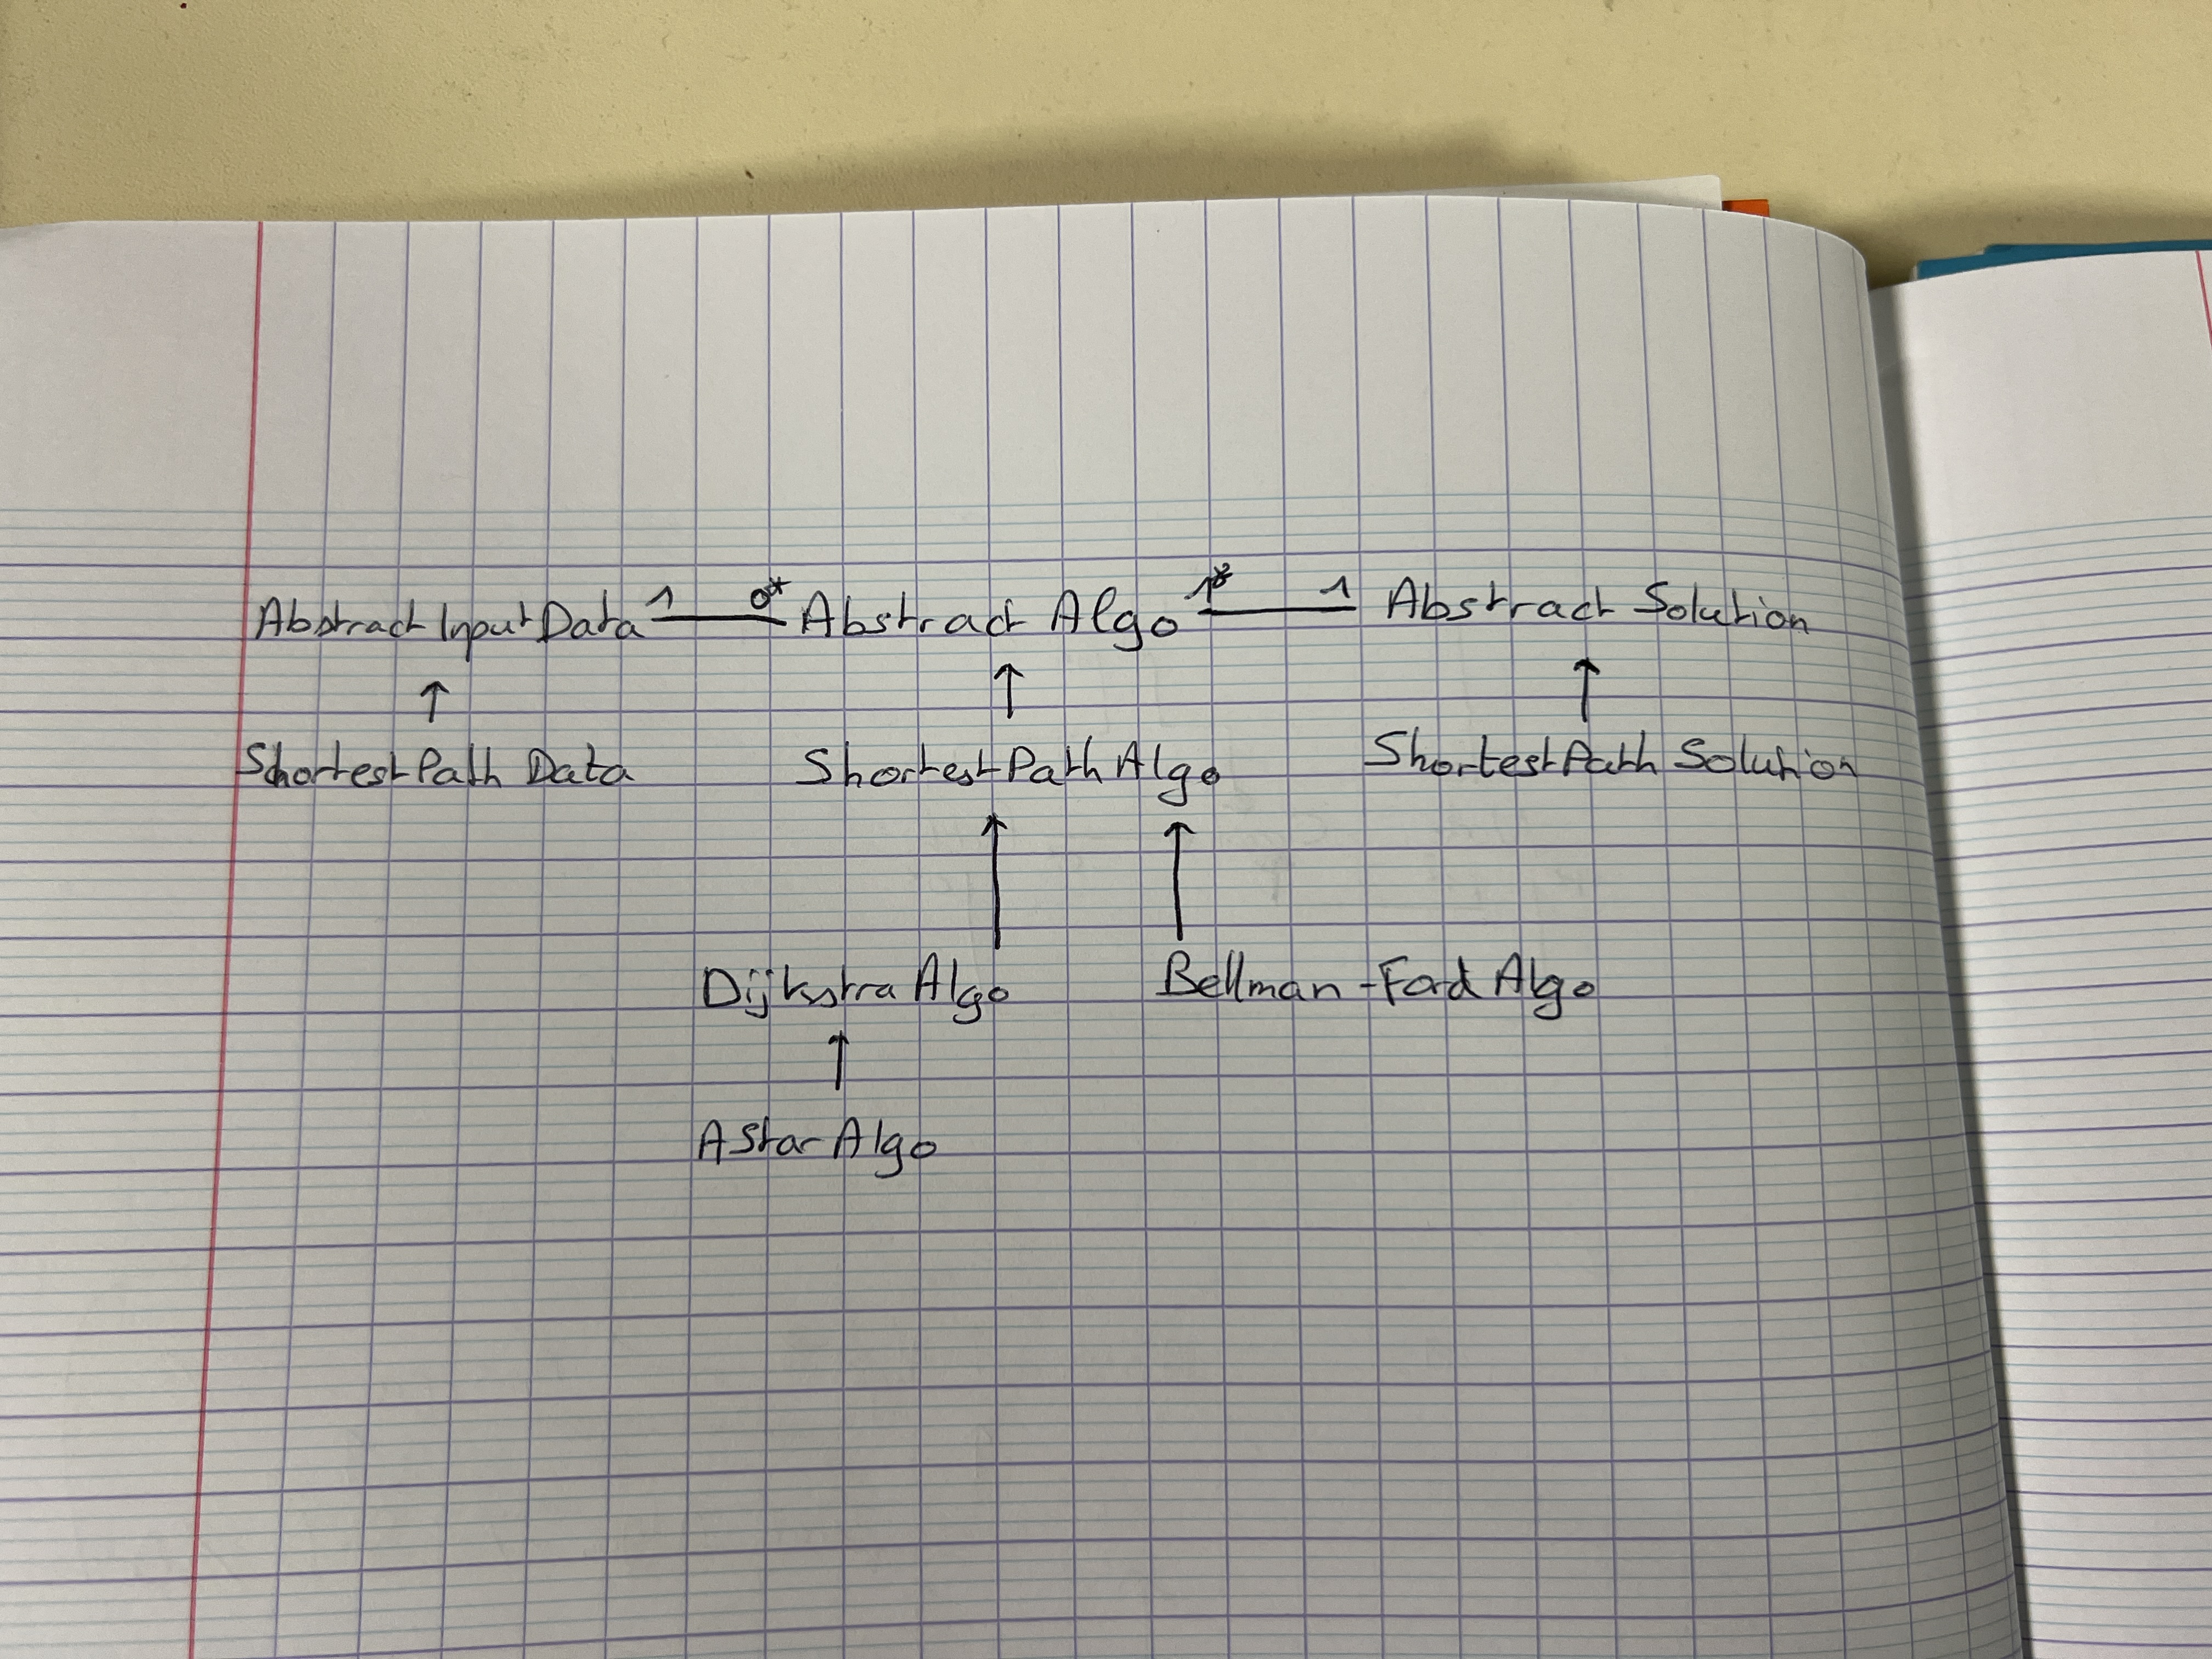 Abstract Input Data 1 0* Abstract Algo 1* 1 Abstract Solution
Shortest Path Data Shortest Path Algo Shortest Path Solution
Dijkstra Algo Bellman-Ford Algo
AStar Algo